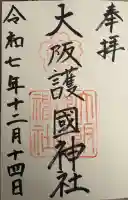 奉拝
大阪護國神社
令和七年十二月十四日